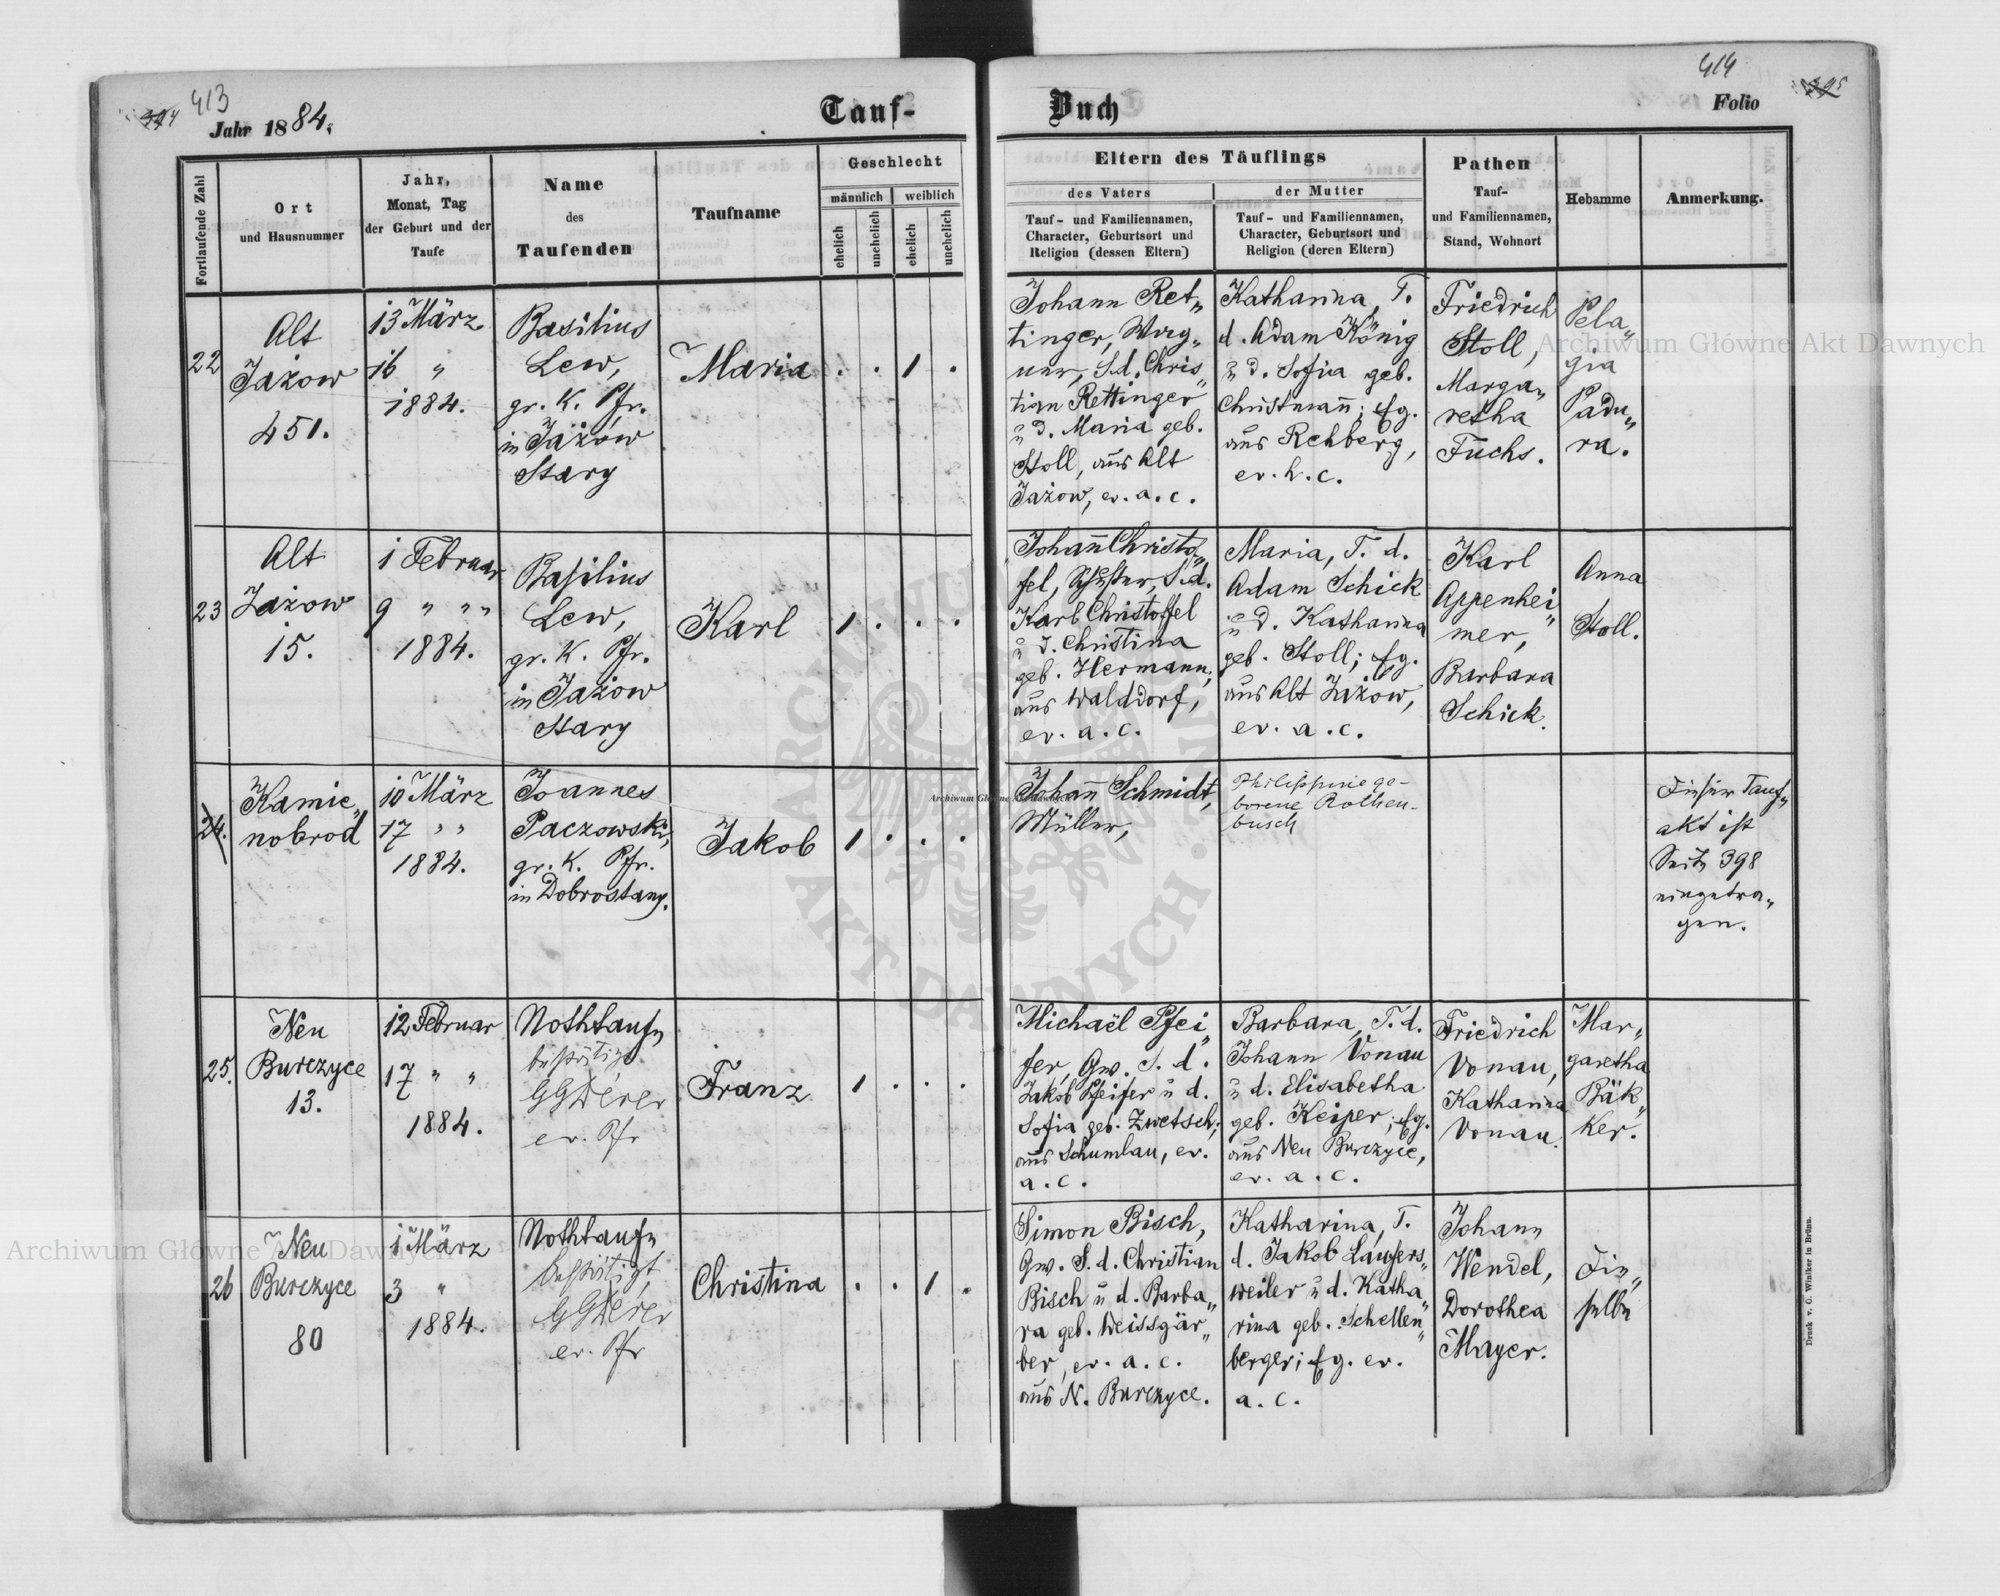 413
Jahr 1884.
Tauf-
Buch
414
Folio
Fortlaufende Zahl
Ort
und Hausnummer
Jahr,
Monat, Tag
der Geburt und der
Taufe
Name
des
Taufenden
Taufname
Geschlecht
männlich
weiblich
ehelich
unehelich
ehelich
unehelich
Eltern des Täuflings
des Vaters
Tauf- und Familiennamen,
Character, Geburtsort und
Religion (dessen Eltern)
der Mutter
Tauf- und Familiennamen,
Character, Geburtsort und
Religion (deren Eltern)
Pathen
Tauf-
und Familiennamen,
Stand, Wohnort
Hebamme
Anmerkung.
22
Alt
Jażow
451.
13 März
16 "
1884.
Basilius
Lew,
gr. K. Pfr.
in Jażów
Stary
Maria
. . 1 .
Johann Ret„
tinger, Wag„
ner, S. d. Chris„
tian Rettinger
u d. Maria geb.
Stoll, aus Alt
Jażow, ev. a. c.
Katharina, T.
d. Adam König
u d. Sofia geb.
Christmann; Eg.
aus Rehberg,
ev. h. c.
Friedrich
Stoll,
Marga„
retha
Fuchs.
Pela„
gia
Padu„
ra.
23
Alt
Jażow
15.
1 Februar
9 " "
1884.
Basilius
Lew,
gr. K. Pfr.
in Jażow
Stary
Karl
1 . . .
Johann Christo„
fel, Schuster, S. d.
Karl Christoffel
u d. Christina
geb. Hermann;
aus Walddorf,
ev. a. c.
Maria, T. d.
Adam Schick
u d. Katharina
geb. Stoll; Eg.
aus Alt Jażow,
ev. a. c.
Karl
Appenhei„
mer,
Barbara
Schick.
Anna
Stoll.
24.
Kamie„
nobrod
10 März
17 " "
1884.
Joannes
Paczowski,
gr. K. Pfr.
in Dobrostany.
Jakob
1 . . .
Johann Schmidt,
Müller,
Philippine ge-
borene Rothen-
busch
Dieser Tauf„
akt ist
Seite 398
eingetra„
gen.
25.
Neu
Burczyce
13.
12 Februar
17 " "
1884.
Nothtaufe
bestätigt
GGDérer
ev. Pfr
Franz
1 . . .
Michaël Pfei„
fer, Gw. S. d.
Jakob Pfeifer u d.
Sofia geb. Zwetsch;
aus Schumlau, ev.
a. c.
Barbara, T. d.
Johann Vonau
u d. Elisabetha
geb. Keiper; Eg.
aus Neu Burczyce,
ev. a. c.
Friedrich
Vonau,
Katharina
Vonau.
Mar„
garetha
Bäk„
ker.
26
Neu
Burczyce
80
1 März
3 "
1884.
Nothtaufe
bestätigt
GGDérer
ev. Pfr
Christina
. . 1 .
Simon Bisch,
Gw. S. d. Christian
Bisch u d. Barba„
ra geb. Weissgär„
ber, ev. a. c.
aus N. Burczyce.
Katharina, T.
d. Jakob Laufers„
weiler u d. Katha„
rina geb. Schellen„
berger; Eg. ev.
a. c.
Johann
Wendel,
Dorothea
Mayer.
Die„
selbe
Druck v. G. Winiker in Brünn.
Archiwum Główne Akt Dawnych
Archiwum Główne Akt Dawnych
Archiwum Główne Akt Dawnych
ARCHIWUM
AKT DAWNYCH